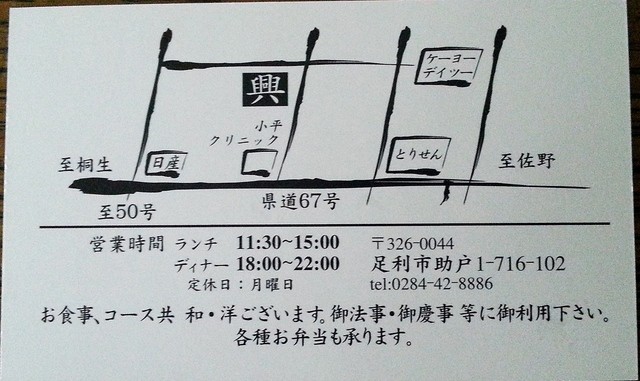 ケーヨー
デイツー
興
小平
クリニック
至桐生
日産
とりせん
至佐野
至50号
県道67号
営業時間 ランチ 11:30~15:00
ディナー 18:00~22:00
定休日：月曜日
〒326-0044
足利市助戸1-716-102
tel:0284-42-8886
お食事、コース共 和・洋ございます。御法事・御慶事 等に御利用下さい。
各種お弁当も承ります。